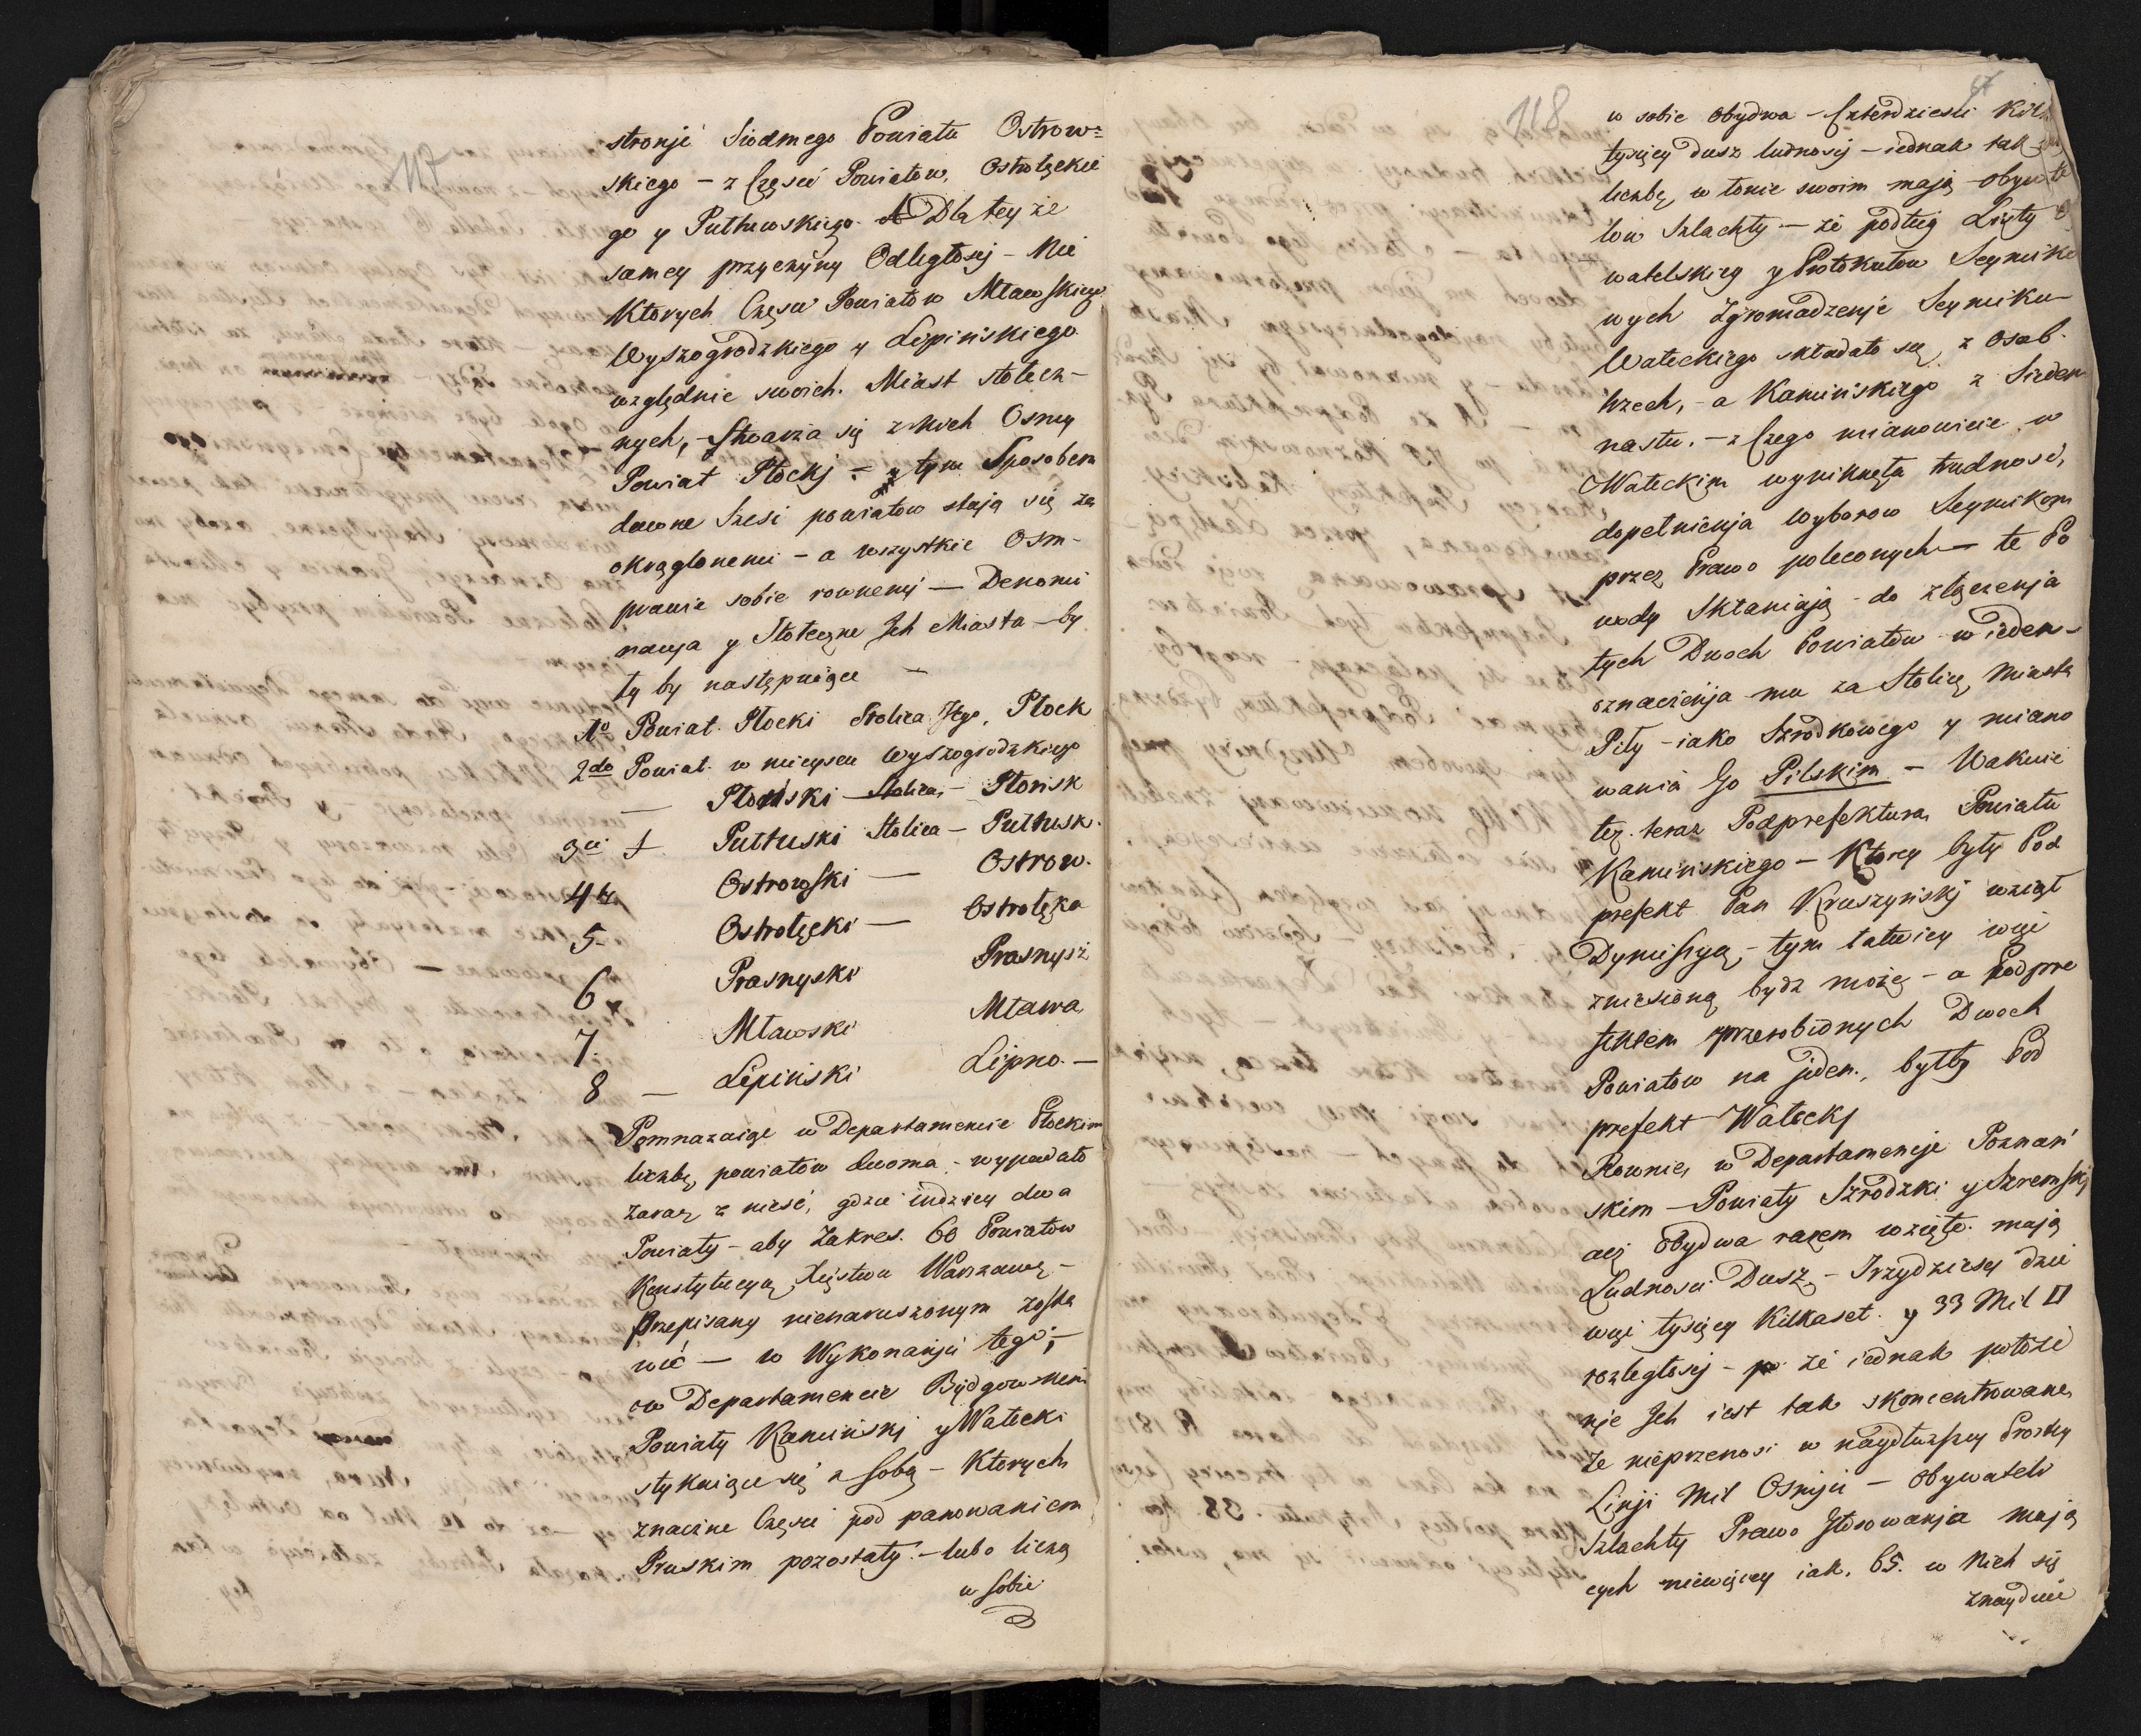 117
stronje Siodmego Powiatu Ostrow=
skiego – z Częsci Powiatow, Ostrołęckie
go y Pułtuwskiego. Dla tey że
samey przyczyny Odległosij – Nie
Ktorych Częsci Powiatow Mławskiego
Wyszogrodzkiego y Lipińskiego
względnie swoich. Miast stołecz-
nych, – stwarza się z Nich Osmy
Powiat Płockj – y tym Sposobem
dawne Szesć powiatow stają się za
okrąglonemi – a wszystkie Osm –
prawie sobie rownemj – Denomi
nacya y Stołeczne Jch Miasta – by
ły by następuiące –
1o Powiat. Płocki Stolica Jego, Płock
2do Powiat. w mieyscu Wyszogrodzkiego
— Płoński – Stolica, – Płońsk
3ci Pułtuski Stolica – Pułtusk.
4ty Ostrowski — Ostrow.
5– Ostrołęcki — Ostrołęka
6 Prasnyski Prasnysz
7. Mławski Mława
8 — Lipiński Lipno. —
Pomnażaiąc w Departamencie Płockim
liczbę powiatow dwoma – wypadało
zaraz znieść, gdzie indziey dwa
Powiaty – aby Zakres. 60 Powiatow
Konstytucyą Xięstwa Warszaws. –
przepisany nienaruszonym zosta
wić — w Wykonanjú tego, –
w Departamencie Bydgowskim
Powiaty Kamińskj y Wałecki
stykaiące się z sobą – Ktorych
znaczne Częsci pod panowaniem
Pruskim pozostały. – lubo liczą
w sobie
118
w sobie Obydwa – Czterdziesci Kil
tysięcy dusz ludnosij – iednak tak
liczbę w łonie swoim mają – obywate
low Szlachty — że podług Listy
watelskiey y Protokułow Seymiko
wych Zgromadzenje Seymiku –
Wałeckiego składało się z Osob.
trzech, – a Kamińskiego z Siedem
nastu. – z Czego mianowicie w
Wałeckim wyniknęła trudność,
dopełnienja Wyborow Seymikom
przez Prawo poleconych — te Po
wody Skłaniają – do złączenja
tych Dwoch Powiatow w ieden –
oznaczenja mu za Stolicę, Miasta
Piły – iako Szrodkowego y miano
wania Go Pilskim – Wakuie
też. teraz Podprefektura, Powiatu
Kamińskiego – Ktorey były Pod
prefekt Pan Kruszyńskj wziął
Dymissyą, – tym łatwiey więc
zniesioną bydz może – a Podpre
fektem przerobionych Dwoch
Powiatow na jeden., byłby Pod
prefekt Wałeckj
Rownież w Departamencje Poznań
skim — Powiaty Szrodzki y Szremskj
acz Obydwa razem wzięte. mają
Ludnosci Dusz – Trzydziescj dzie
więc tysięcy Kilkaset. y 33 Mil □
rozległosij – że iednak położe
nje Jch iest tak skoncentrowane,
że nieprzenosi w naydłuższey Prostey
Linji Mil Osmju – Obywateli
Szlachty Prawo głosowanja mają
cych niewięcey iak. 65. w Nich się
znayduie